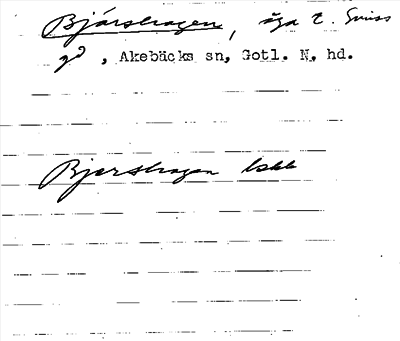 Bjärshagen, äga t. Suiss
gd, Akebäcks sn, Gotl. N. hd.
Bjershagen